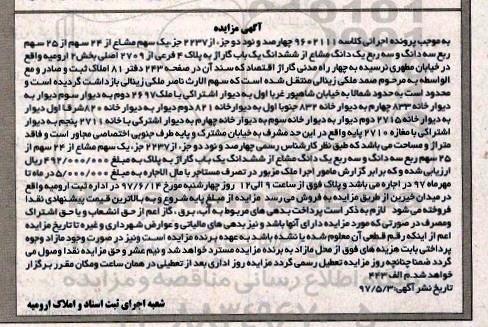 آگهی مزایده
به موجب پرونده اجرائی کلاسه ۹۶۰۲۱۱۱ چهارصد و نود دو جز، از ۲۲۳۷ جز یک سهم مشاع از ۲۴ سهم از ۲۵ سهم
ربع سه دانگ و سه ربع یک دانگ مشاع از ششدانگ یک باب گاراژ به پلاک ۴ فرعی از ۲۷۰۹ اصلی بخش ۲ ارومیه واقع
در خیابان مطهری نرسیده به چهارراه مدنی گاراژ اقتصاد که سند آن در صفحه ۲۴۳ دفتر ۸۱ املاک ثبت و صادر و مع
الواسطه به مرحوم صمد ملکی زینالی منتقل شده است که سهم الارث ناصر ملکی زینالی بازداشت گردیده است و
محدود است به حدود شمالا به خیابان شاهپور غربا اول به دیوار اشتراکی با ملک ۲۶۹۷ دوم به دیوار سوم دیوار به
دیوار خانه ۸۳۳ چهارم به دیوار خانه ۸۳۲ جنوبا اول به دیوار خانه ۸۲۱ دوم دیوار به دیوار خانه ۸۲۰ شرقا اول دیوار
به دیوار خانه ۲۷۱۵ دوم دیوار به دیوار خانه سوم به دیوار خانه چهارم به دیوار اشترکی با خانه ۲۷۱۱ پنجم به دیوار
اشتراکی با مغازه ۲۷۱۰ پایه واقع در این حد مشرف به خیابان مشترک و پایه طرف جنوبی اختصاصی مجاور است و فاقد
متراژ و مساحت می باشد که طبق نظر کارشناس رسمی چهارصد و نود دو جز، از ۲۲۳۷ جز، یک سهم مشاع از ۲۴ سهم از
۲۵ سهم ربع سه دانگ و سه ربع یک دانگ مشاع از ششدانگ یک باب گاراژ به پلاک به مبلغ ۴۹۲/۰۰۰/۰۰۰ ریال
ارزیابی شده و که برابر گزارش مامور اجرا ملک مزبور در تصرف مستاجر با مال الاجاره به مبلغ ۵/۰۰۰/۰۰۰ در ماه تا
مهرماه ۹۷ در اجاره می باشد و پلاک فوق از ساعت ۹ الی ۱۲ روز چهارشنبه مورخ ۹۷/۶/۱۴ در اداره ثبت ارومیه واقع
در میدان خیرین از طریق مزایده به فروش می رسد مزایده از مبلغ پایه شروع و به بالاترین قیمت پیشنهادی نقدا
فروخته می شود لازم به ذکر است پرداخت بدهی های مربوط به آب، برق، گاز اعم از حق انشعاب و یا حق اشتراک
ومصرف در صورتی که مورد مزایده دارای آنها باشد و نیز بدهی های مالیاتی و عوارض شهرداری و غیره تا تاریخ مزایده
اعم از اینکه رقم قطعی آن معلوم شده یا نشده باشد به عهده برنده مزایده است ونیز در صورت وجود مازاد وجوه
پرداختی بابت هزینه های فوق از محل مازاد به برنده مزایده مسترد خواهد شد و نیم عشر و حق مزایده نقدا وصول می
گردد ضمنا چنانچه روز مزایده تعطیل رسمی گردد مزایده روز اداری بعد از تعطیلی در همان ساعت ومکان مقرر برگزار
خواهد شد.م الف ۴۴۳
تاریخ نشر آگهی: ۹۷/۵/۳
شعبه اجرای ثبت اسناد و املاک ارومیه